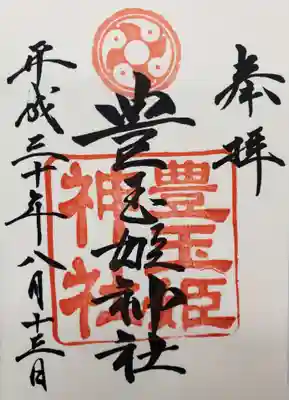 奉拝
豊玉姫神社
平成三十年八月十三日
豊玉姫
神社